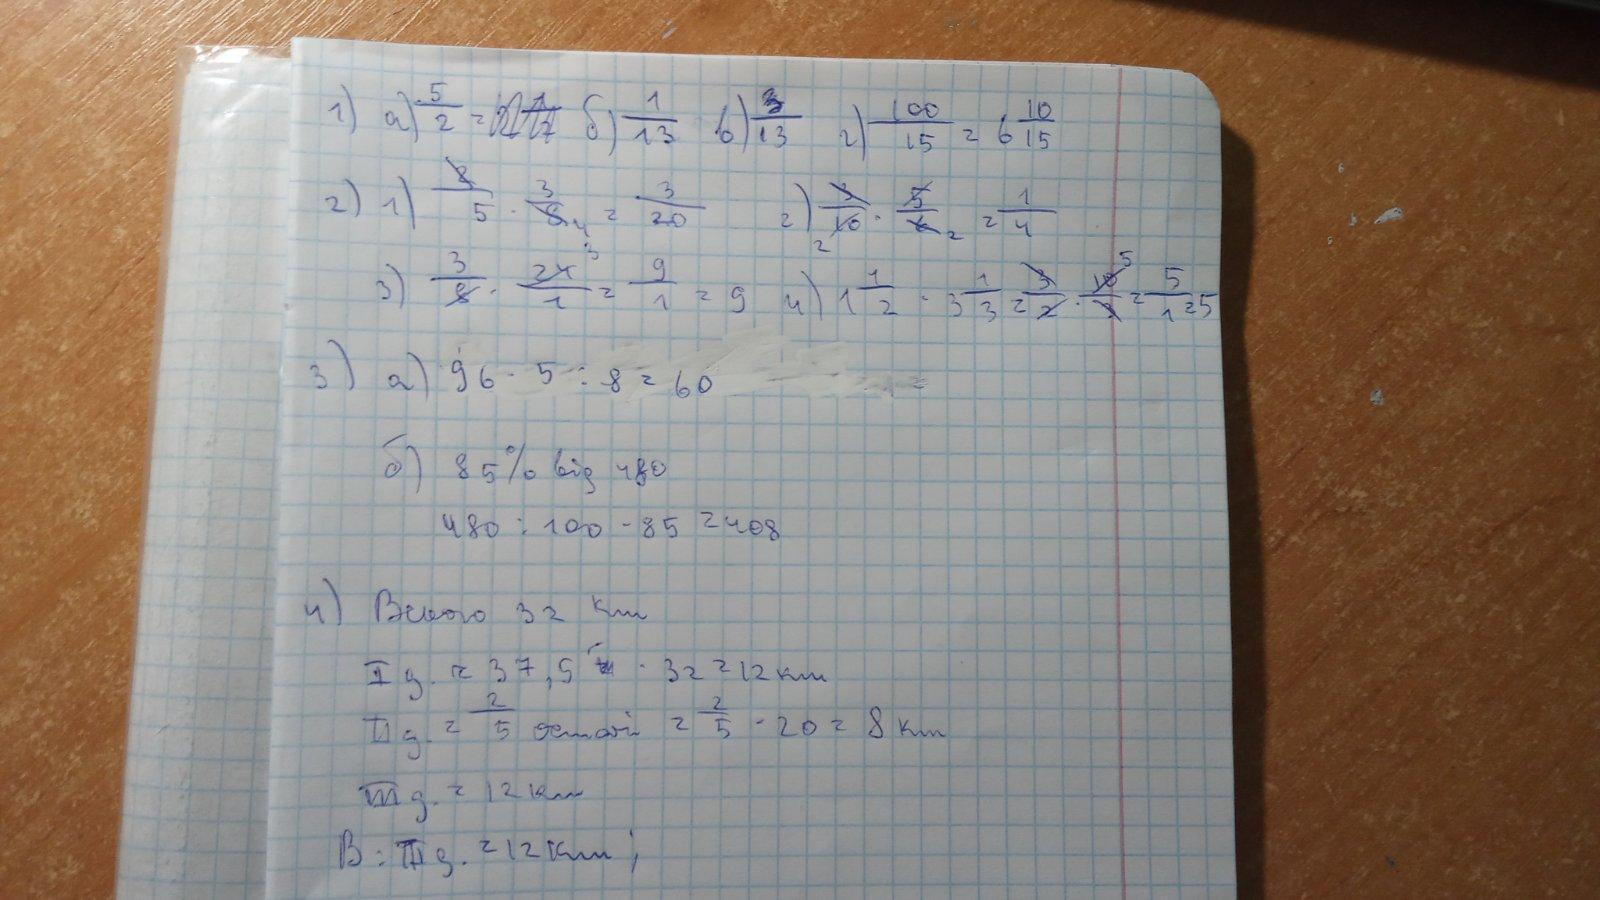 1) а) 5/2 = б) 1/13 в) 3/13 г) 100/15 = 6 10/15
2) 1) 8/5 · 3/8 4 = 3/20 2) 3/10 2 · 5/6 2 = 1/4
3) 3/8 · 24/1 3 = 9/1 = 9 4) 1 1/2 · 3 1/3 = 3/2 · 10/3 5 = 5/1 = 5
3) а) 96 · 5 : 8 = 60
б) 85% від 480
480 : 100 · 85 = 408
4) Всього 32 км
I д. = 37,5 · 32 = 12 км
II д. = 2/5 = 2/5 · 20 = 8 км
III д. = 12 км
В: III д. = 12 км;